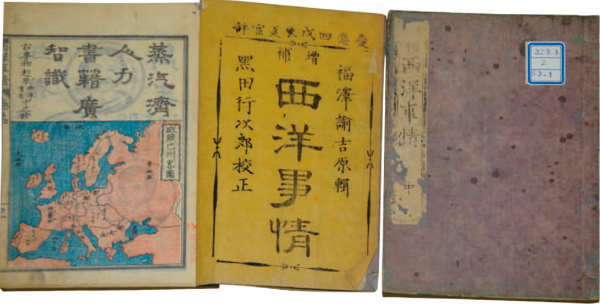 蒸汽濟
人力
書籍廣
知識
慶應四戊辰夏官許
增補
福澤諭吉原輯
西洋事情
黑田行次郎校正
西洋事情
2
53-1